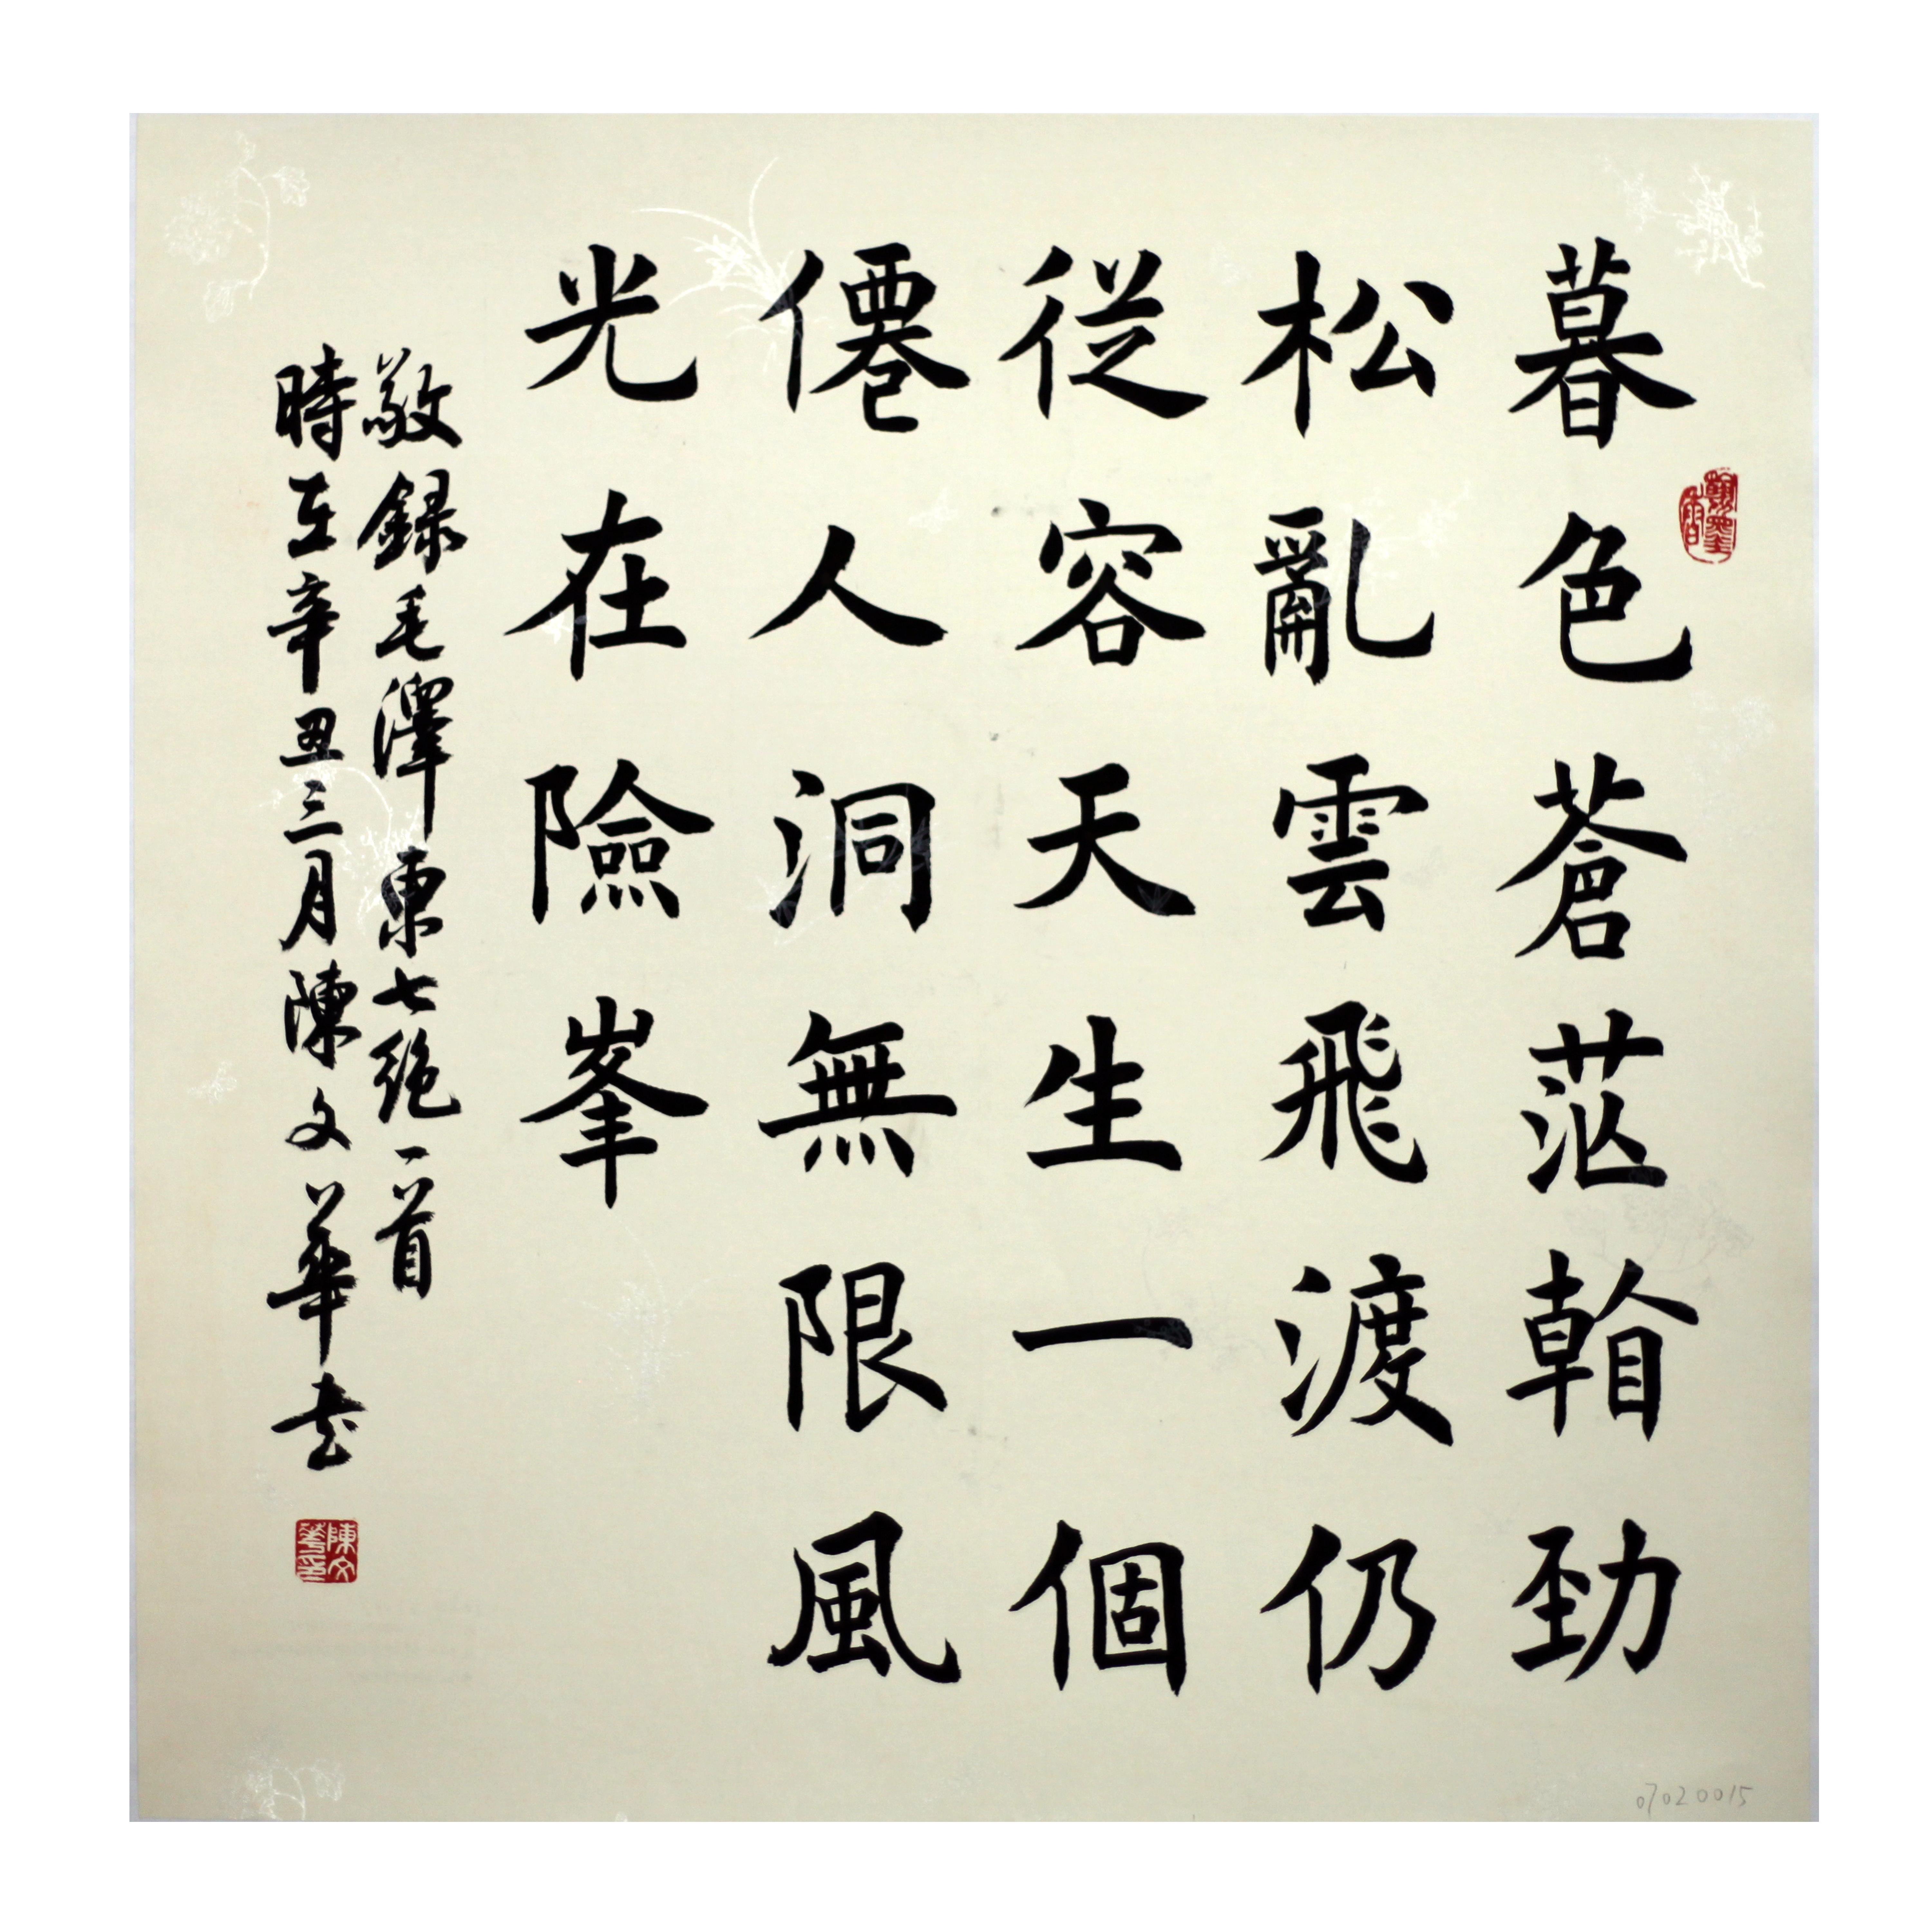 暮色蒼茫翰勁
松亂雲飛渡仍
從容天生一個
僊人洞無限風
光在險峯
敬録毛澤東七絶一首
時在辛丑三月陳文華書
翰墨香
陳文華印
07020015